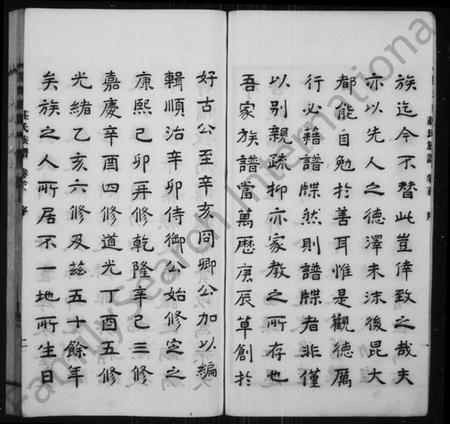 族迄今不替此豈倖致之哉夫
亦以先人之德澤未沫後昆大
都能自勉於善耳惟是觀德厲
行必藉譜牒然則譜牒者非僅
以別親疏抑亦家教之所存也
吾家族譜當萬歷庚辰草創於
好古公至辛亥同卿公加以編
輯順治辛卯侍御公始修定之
康熙己卯再修乾隆辛巳三修
嘉慶辛酉四修道光丁酉五修
光緒乙亥六修及茲五十餘年
矣族之人所居不一地所生日
莊氏族譜
序
FamilySearch International